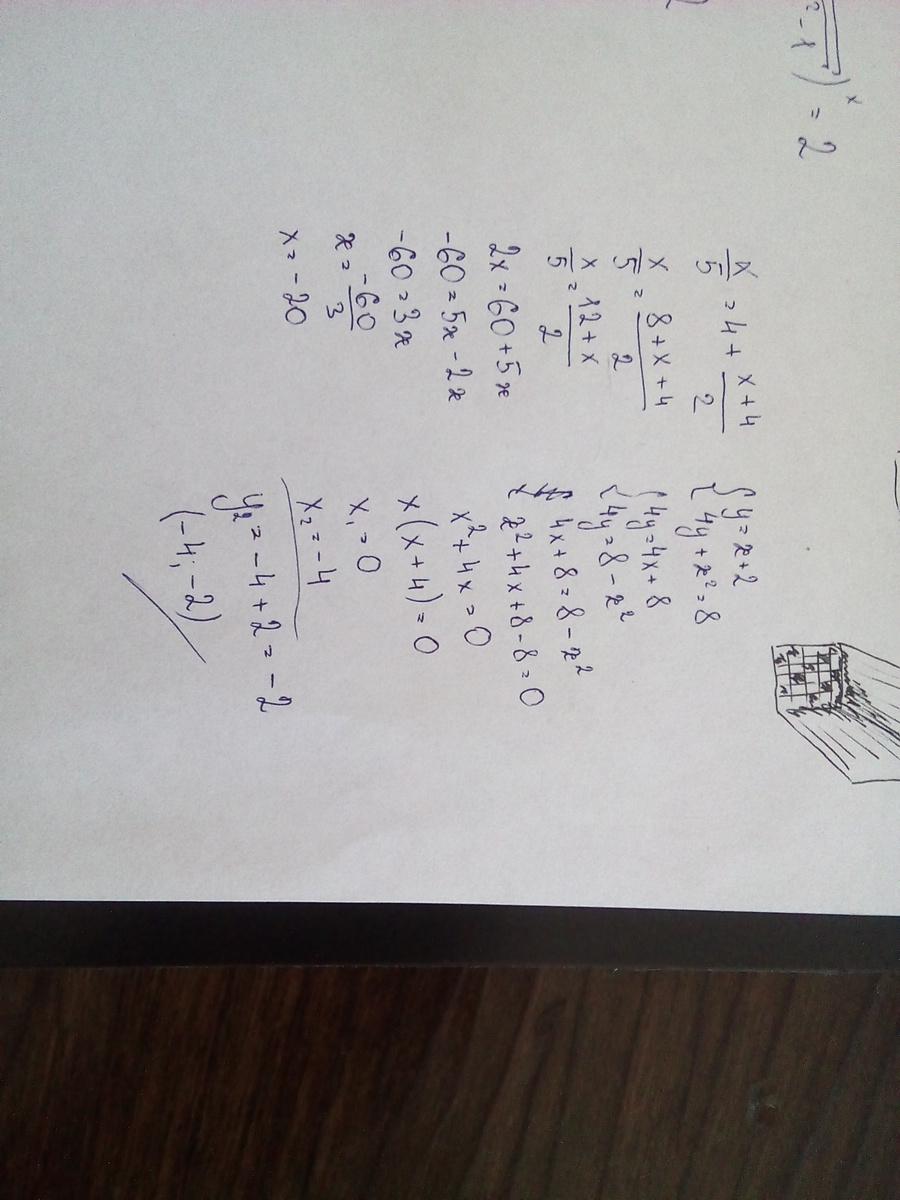 ² - 1)ˣ = 2
x/5 = 4 + (x+4)/2
x/5 = (8+x+4)/2
x/5 = (12+x)/2
2x = 60 + 5x
-60 = 5x - 2x
-60 = 3x
x = -60/3
x = -20
{ y = x+2
{ 4y + x² = 8
{ 4y = 4x + 8
{ 4y = 8 - x²
4x + 8 = 8 - x²
x² + 4x + 8 - 8 = 0
x² + 4x = 0
x(x+4) = 0
x₁ = 0
x₂ = -4
y₂ = -4 + 2 = -2
(-4; -2)